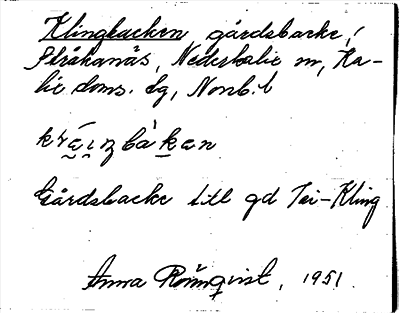 Klingbacken gårdsbacke,
Stråkanäs, Nederkalix sn, Ka-
lix doms. dg, Nonb. l
Gårdsbacke till gd Per-Kling
Anna Rönnqvist, 1951